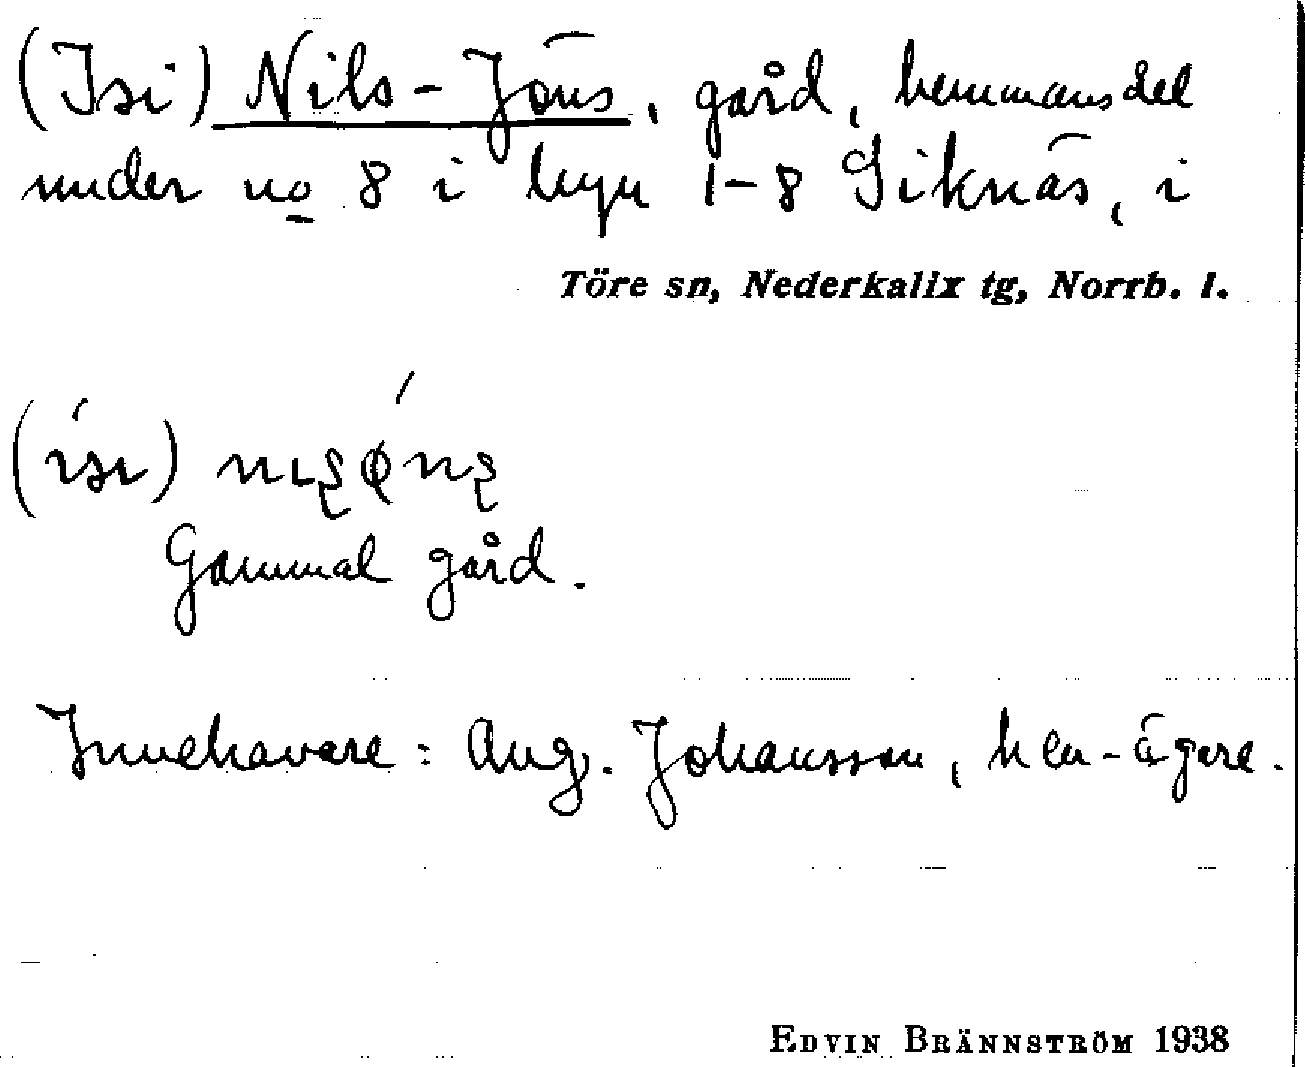 (Isi) Nils-Jöns, gård, hemmansdel
under no 8 i byn 1-8 Siknäs, i
Töre sn, Nederkalix tg, Norrb. l.
Gammal gård.
Innehavare: Aug. Johansson, hem-ägare.
EDVIN BRÄNNSTRÖM 1938